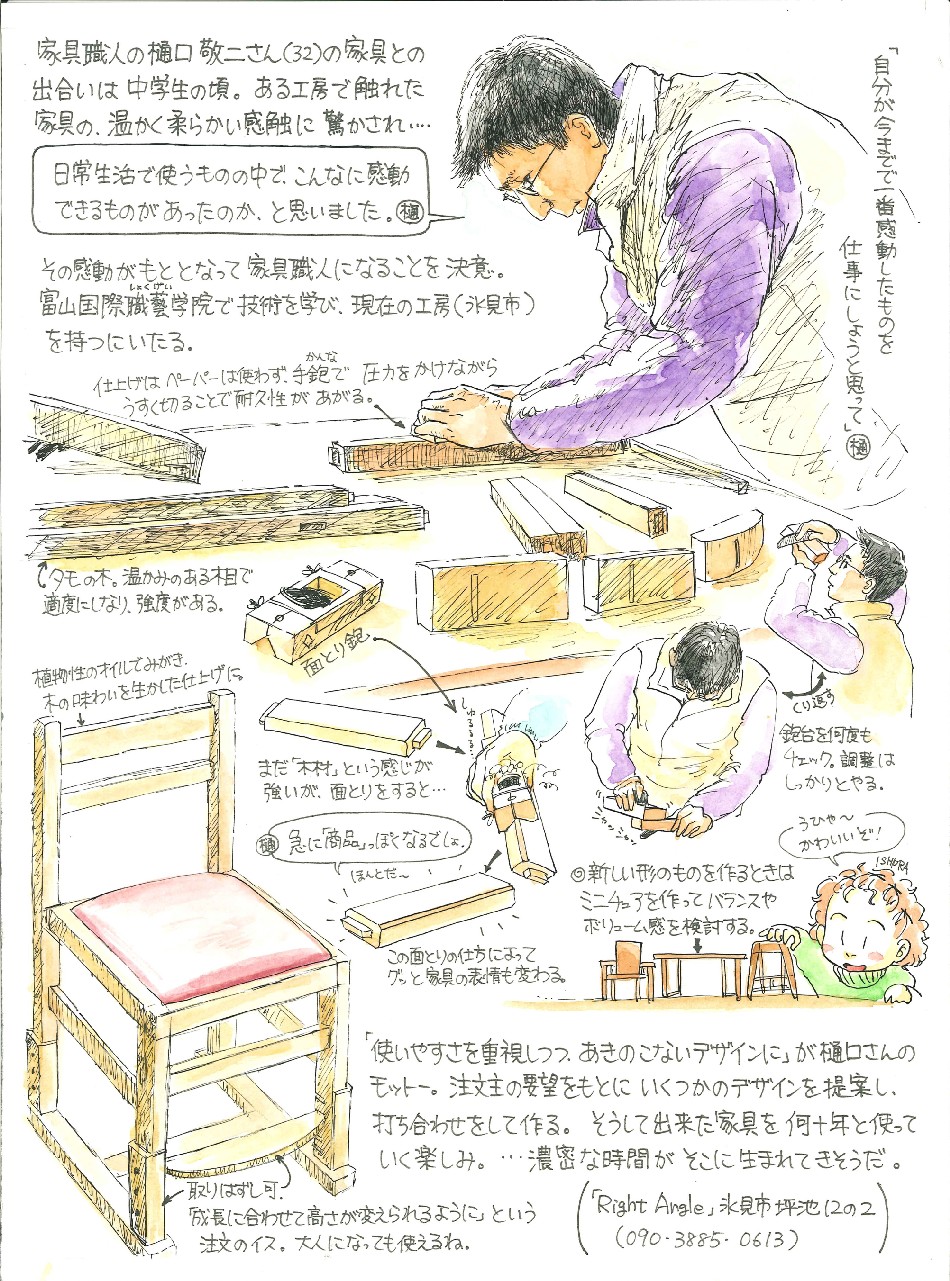 家具職人の樋口 敬二さん(32)の家具との
出合いは 中学生の頃。ある工房で触れた
家具の、温かく柔らかい感触に 驚かされ‥‥
日常生活で使うものの中で、こんなに感動
できるものがあったのか、と思いました。㊢樋
「自分が今までで一番感動したものを
仕事にしようと思って」樋
その感動がもととなって 家具職人になることを 決意。
しょくげい
富山国際職藝学院で技術を学び、現在の工房(氷見市)
を持つにいたる。
かんな
仕上げは ペーパーは使わず、手鉋で 圧力をかけながら
うすく切ることで耐久性が あがる。
タモの木。温かみのある木目で
適度にしなり、強度がある。
面とり鉋
くり返す
鉋台を何度も
チェック。調整は
しっかりとやる。
植物性のオイルでみがき、
木の味わいを生かした仕上げに。
しゅるるる
まだ「木材」という感じが
強いが、面とりをすると…
シャッシャッ
樋 急に「商品」っぽくなるでしょ。
ほんとだ〜
この面とりの仕方によって
グッと家具の表情も変わる。
うひゃ〜
かわいいぞ!
ISHURA
◎新しい形のものを作るときは
ミニチュアを作って バランスや
ボリューム感を検討する。
「使いやすさを重視しつつ、あきのこないデザインに」が樋口さんの
モットー。注文主の要望をもとに いくつかのデザインを提案し、
打ち合わせをして作る。そうして出来た家具を 何十年と使って
いく楽しみ。…濃密な時間が そこに生まれてきそうだ。
取りはずし可.
「成長に合わせて高さが変えられるように」という
注文のイス。大人になっても使えるね。
(「Right Angle」氷見市坪池12の2
(090-3885-0613))